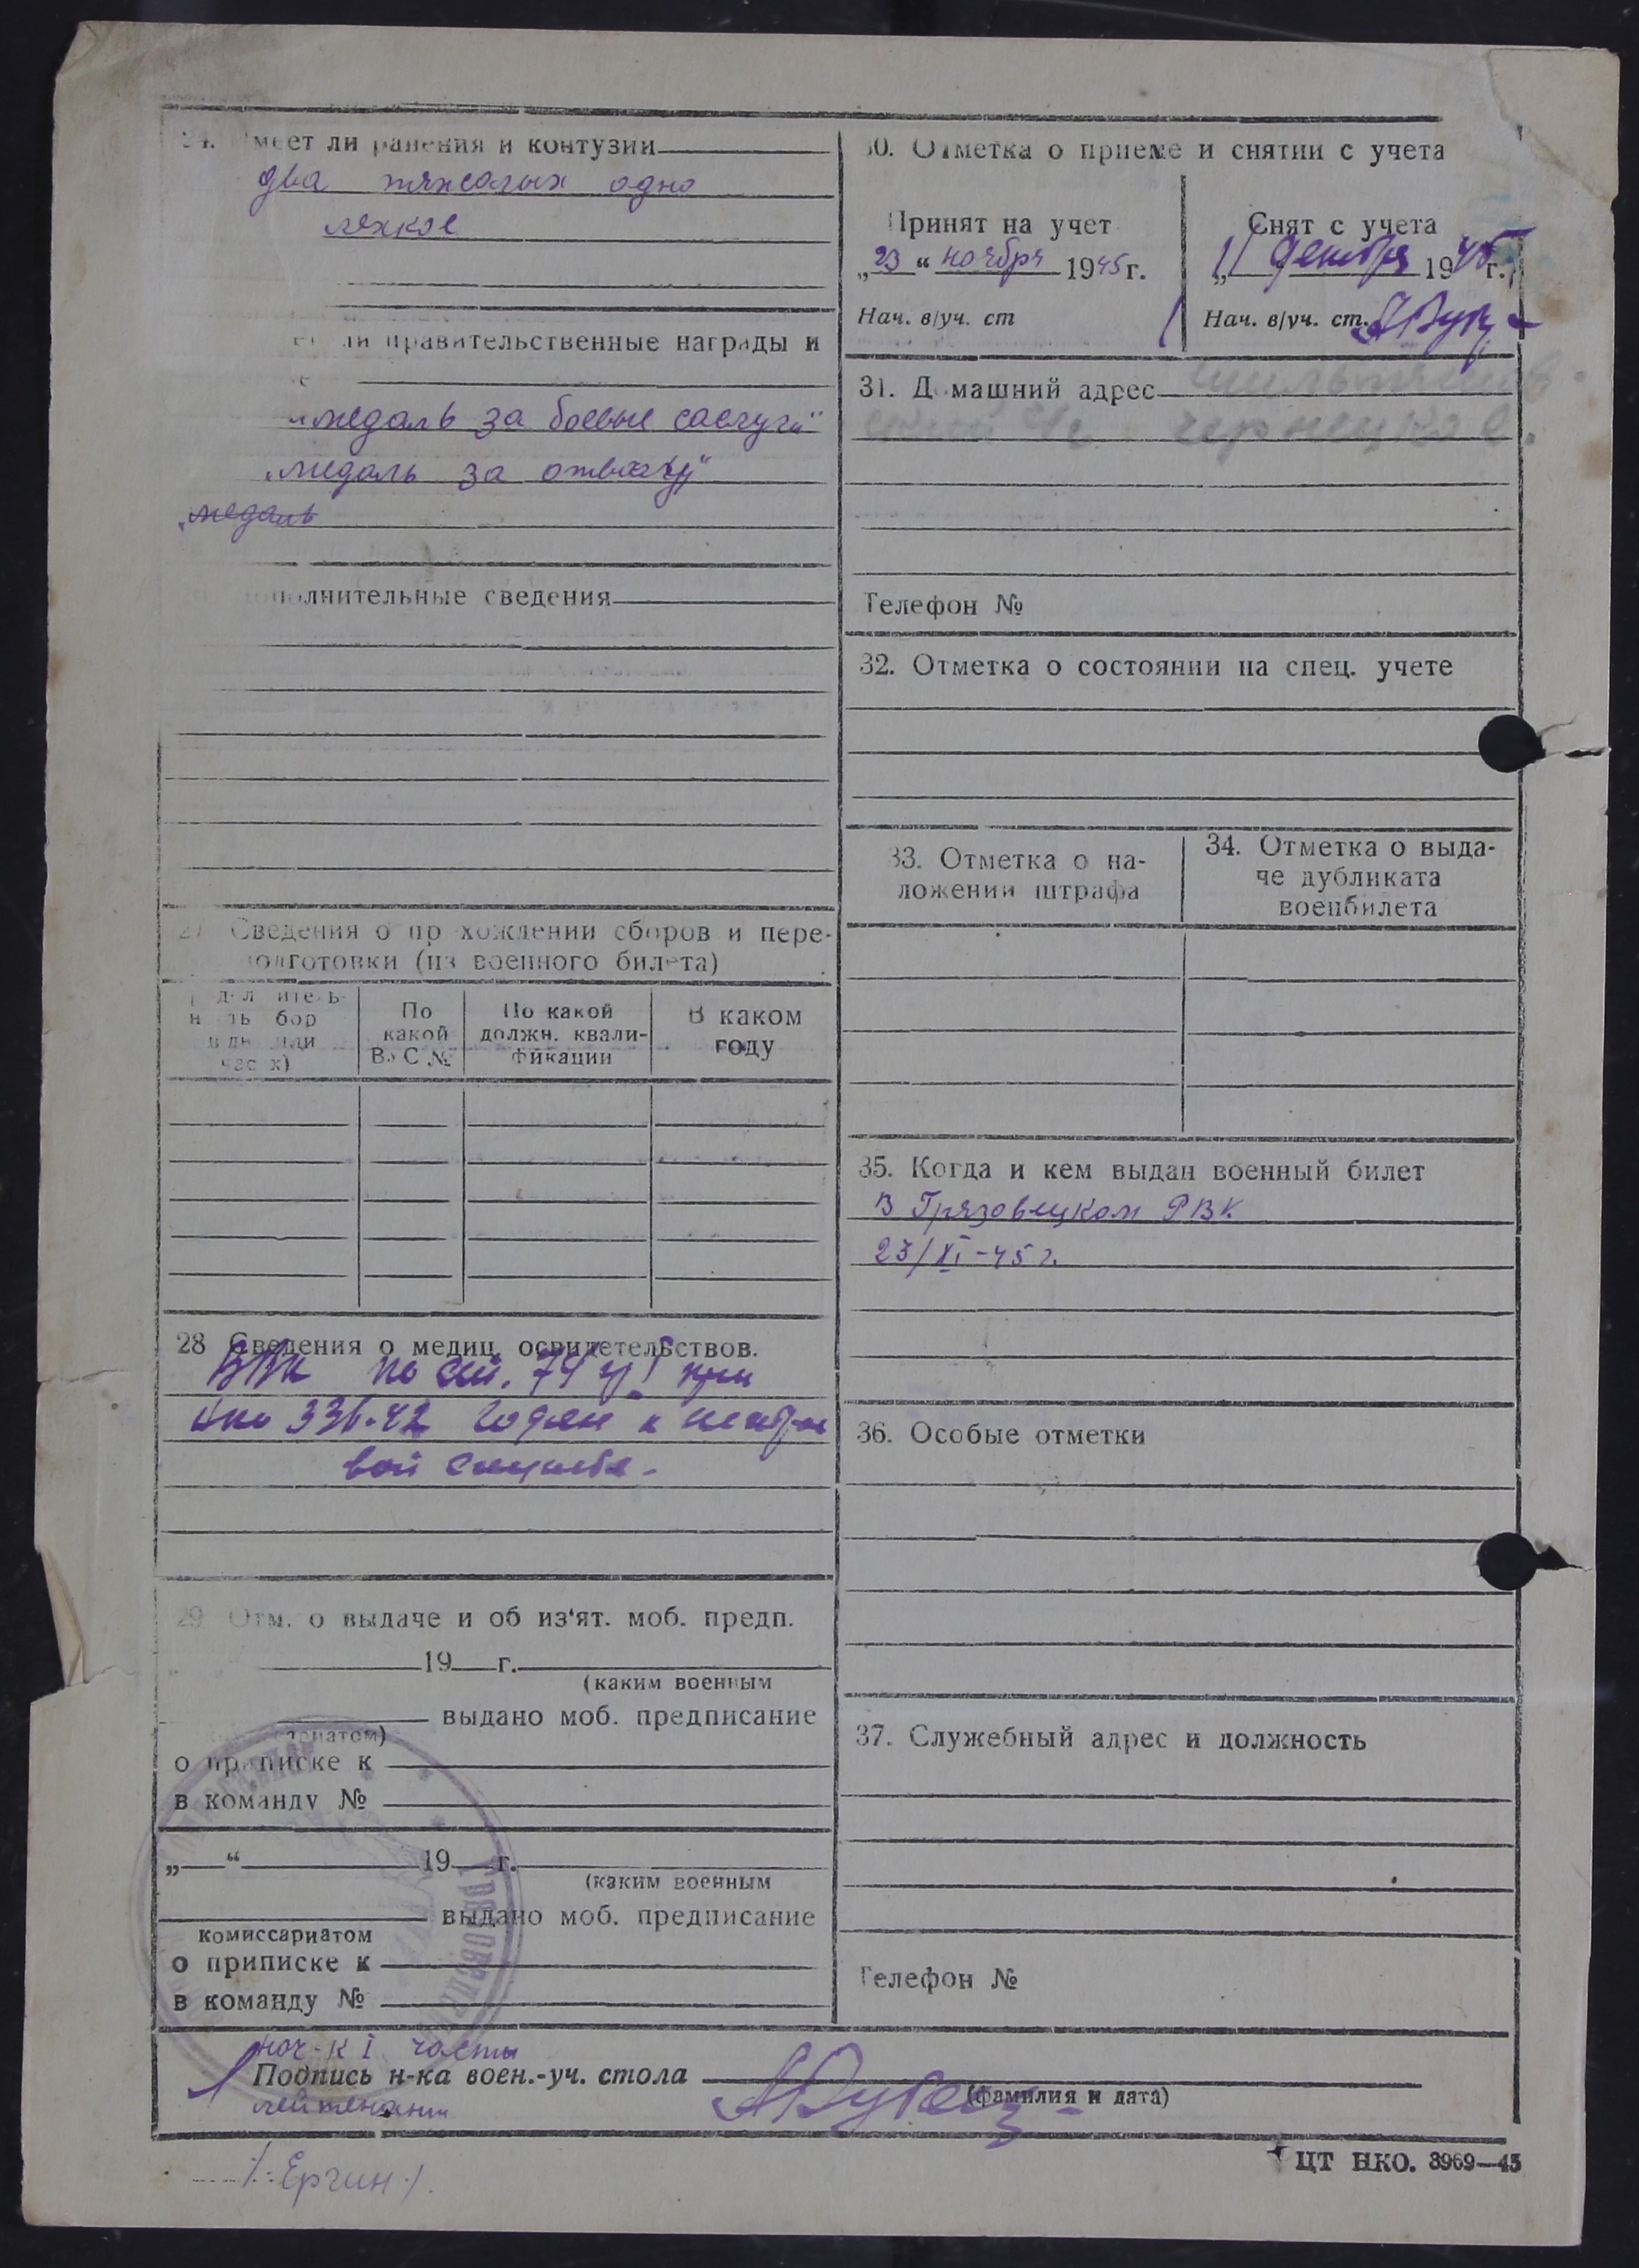 24. Имеет ли ранения и контузии
два тяжолых одно
лехкое
ли правительственные награды и
„медаль за боевые саслуги“
„медаль за отвагу“
„медаль
дополнительные сведения
27 Сведения о прохождении сборов и пере-
подготовки (из военного билета)
По
какой
ВУС №
По какой
должн. квали-
фикации
В каком
году
28 Сведения о медиц. освидетельствов.
ВВК по ст. 74 при
нко 336-42 годен к
вой службе.
29 Отм. о выдаче и об из‘ят. моб. предп.
19 г.
(каким военным
выдано моб. предписание
о приписке к
в команду №
„ “ 19 г.
(каким военным
выдано моб. предписание
комиссариатом
о приписке к
в команду №
30. Отметка о приеме и снятии с учета
Принят на учет
„23“ ноября 1945 г.
Нач. в/уч. ст
Снят с учета
11 декабря 1945 г.
Нач. в/уч. ст.
31. Домашний адрес
Телефон №
32. Отметка о состоянии на спец. учете
33. Отметка о на-
ложении штрафа
34. Отметка о выда-
че дубликата
военбилета
35. Когда и кем выдан военный билет
В Грязовецком РВК
23/XI-45 г.
36. Особые отметки
37. Служебный адрес и должность
Телефон №
нач-к I части
Подпись н-ка воен.-уч. стола
(фамилия и дата)
лейтенант
/-Ергин-/.
ЦТ НКО. 3969—45